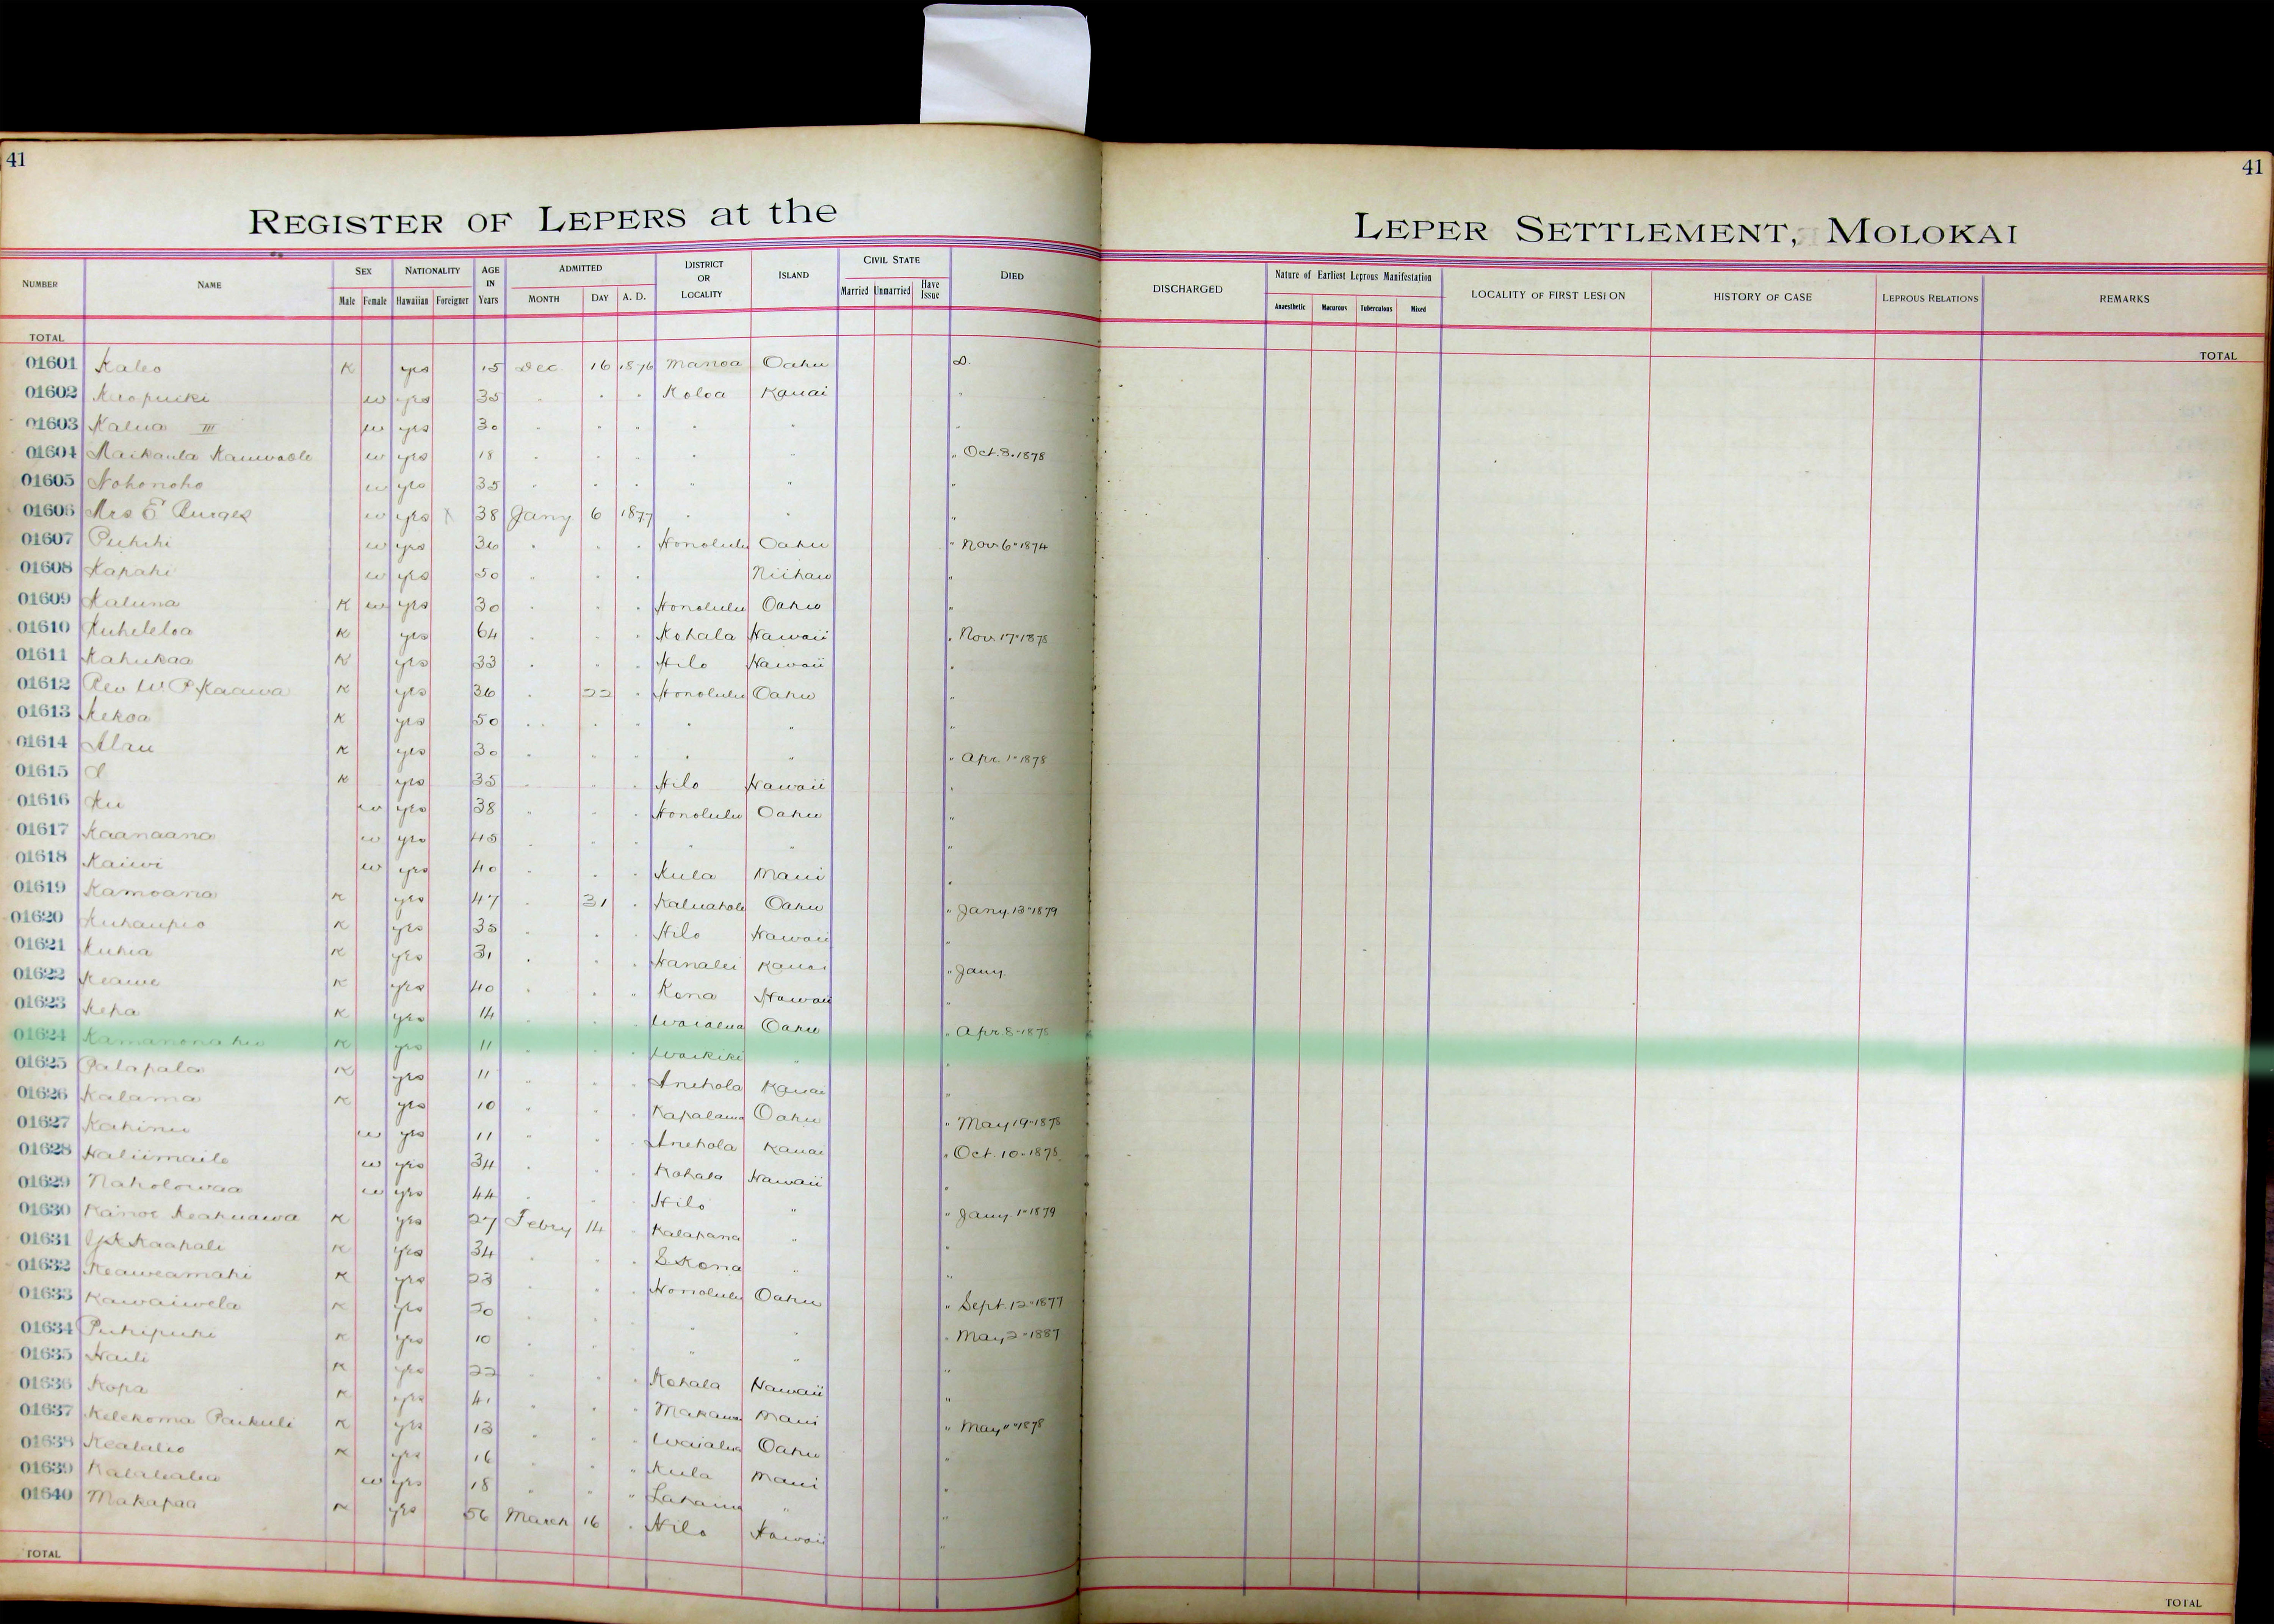 41
41
REGISTER OF LEPERS at the
LEPER SETTLEMENT, MOLOKAI
NUMBER NAME SEX Male Female NATIONALITY Hawaiian Foreigner AGE IN Years ADMITTED MONTH DAY A. D. DISTRICT OR LOCALITY ISLAND CIVIL STATE Married Unmarried Have Issue DIED DISCHARGED Nature of Earliest Leprous Manifestation Anaesthetic Macurous Tuberculous Mixed LOCALITY OF FIRST LESION HISTORY OF CASE LEPROUS RELATIONS REMARKS
TOTAL TOTAL
01601 Kaleo K yes 15 Dec. 16 1876 Manoa Oahu D.
01602 Keopuiki w yes 35 " " " Koloa Kauai "
01603 Kalua III w yes 30 " " " " " "
01604 Maikaula w yes 18 " " " " " " Oct. 3. 1878
01605 Nohonoho w yes 35 " " " " " "
01606 Mrs E Burges w yes X 38 Jany 6 1877 " " "
01607 Puhihi w yes 36 " " " Honolulu Oahu " Nov 6 " 1874
01608 Kapahi w yes 50 " " " Niihau "
01609 Kaluna K w yes 30 " " " Honolulu Oahu "
01610 Kuheleloa K yes 64 " " " Kohala Hawaii " Nov 17 " 1878
01611 Kahukaa K yes 33 " " " Hilo Hawaii "
01612 Rev W. P. Kaawa K yes 36 " 22 " Honolulu Oahu "
01613 Kekoa K yes 50 " " " " " "
01614 Alau K yes 30 " " " " " " Apr. 1 " 1878
01615 K yes 35 " " " Hilo Hawaii "
01616 Ku w yes 38 " " " Honolulu Oahu "
01617 Kaanaana w yes 45 " " " " " "
01618 Kaiwi w yes 40 " " " Kula Maui "
01619 Kamoana K yes 47 " 31 " Kaluahole Oahu " Jany. 13 " 1879
01620 Kuhaupio K yes 35 " " " Hilo Hawaii "
01621 Kuhia K yes 31 " " " Hanalei Kauai " Jany.
01622 Keawe K yes 40 " " " Kona Hawaii "
01623 Kepa K yes 14 " " " Waialua Oahu " Apr. 8 " 1878
01624 K yes 11 " " " Waikiki " "
01625 Palapala K yes 11 " " " Anehola Kauai "
01626 Kalama K yes 10 " " " Kapalama Oahu " May 19 " 1878
01627 Kahinu w yes 11 " " " Anehola Kauai " Oct. 10 " 1878
01628 Haliimaile w yes 34 " " " Kohala Hawaii "
01629 Naholowaa w yes 44 " " " Hilo " " Jany. 1 " 1879
01630 Kainoe Keahuawa K yes 27 Febry 14 " Kalapana " "
01631 Kaapali K yes 34 " " " S Kona " "
01632 Keaweamahi K yes 23 " " " Honolulu Oahu " Sept. 12 " 1877
01633 Kawaiwela K yes 20 " " " " " " May 2 " 1887
01634 Puhipuhi K yes 10 " " " " " "
01635 Haili K yes 22 " " " Kohala Hawaii "
01636 Kopa K yes 41 " " " Makawao Maui " May 11 " 1878
01637 Kelekoma Paikuli K yes 13 " " " Waialua Oahu "
01638 Kealalio K yes 16 " " " Kula Maui "
01639 w yes 18 " " " Lahaina " "
01640 Makapaa K yes 56 March 16 " Hilo Hawaii "
TOTAL TOTAL